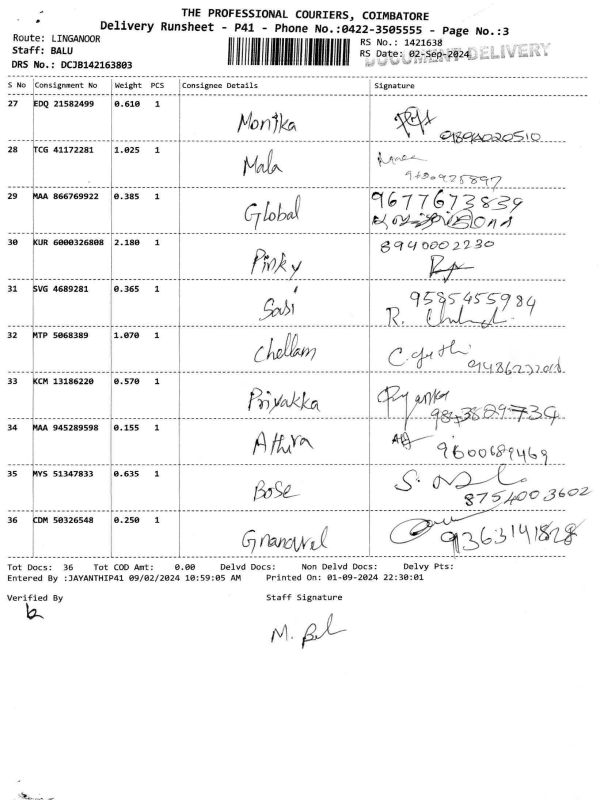 THE PROFESSIONAL COURIERS, COIMBATORE
Delivery Runsheet - P41 - Phone No.:0422-3505555 - Page No.:3
Route: LINGANOOR
RS No.: 1421638
Staff: BALU
RS Date: 02-Sep-2024
DOCUMENT DELIVERY
DRS No.: DCJB142163803
S No Consignment No Weight PCS Consignee Details Signature
27 EDQ 21582499 0.610 1
Monika
9894020510
28 TCG 41172281 1.025 1
Mala
29 MAA 866769922 0.385 1
Global
9677673839
30 KUR 6000326808 2.180 1
Pinky
8940002230
31 SVG 4689281 0.365 1
Sasi
9585455984
32 MTP 5068389 1.070 1
Chellam
33 KCM 13186220 0.570 1
Priyakka
Priyanka
34 MAA 945289598 0.155 1
Athira
9600689469
35 MYS 51347833 0.635 1
Bose
8754003602
36 CDM 50326548 0.250 1
Gnanavel
9363141828
Tot Docs: 36 Tot COD Amt: 0.00 Delvd Docs: Non Delvd Docs: Delvy Pts:
Entered By :JAYANTHIP41 09/02/2024 10:59:05 AM Printed On: 01-09-2024 22:30:01
Verified By Staff Signature